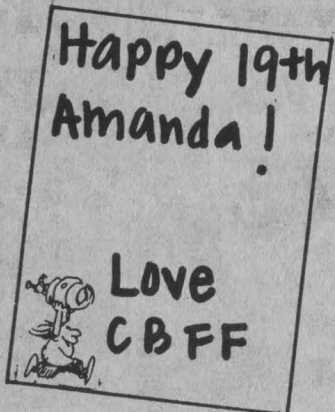 Happy 19th
Amanda!
Love
CBFF